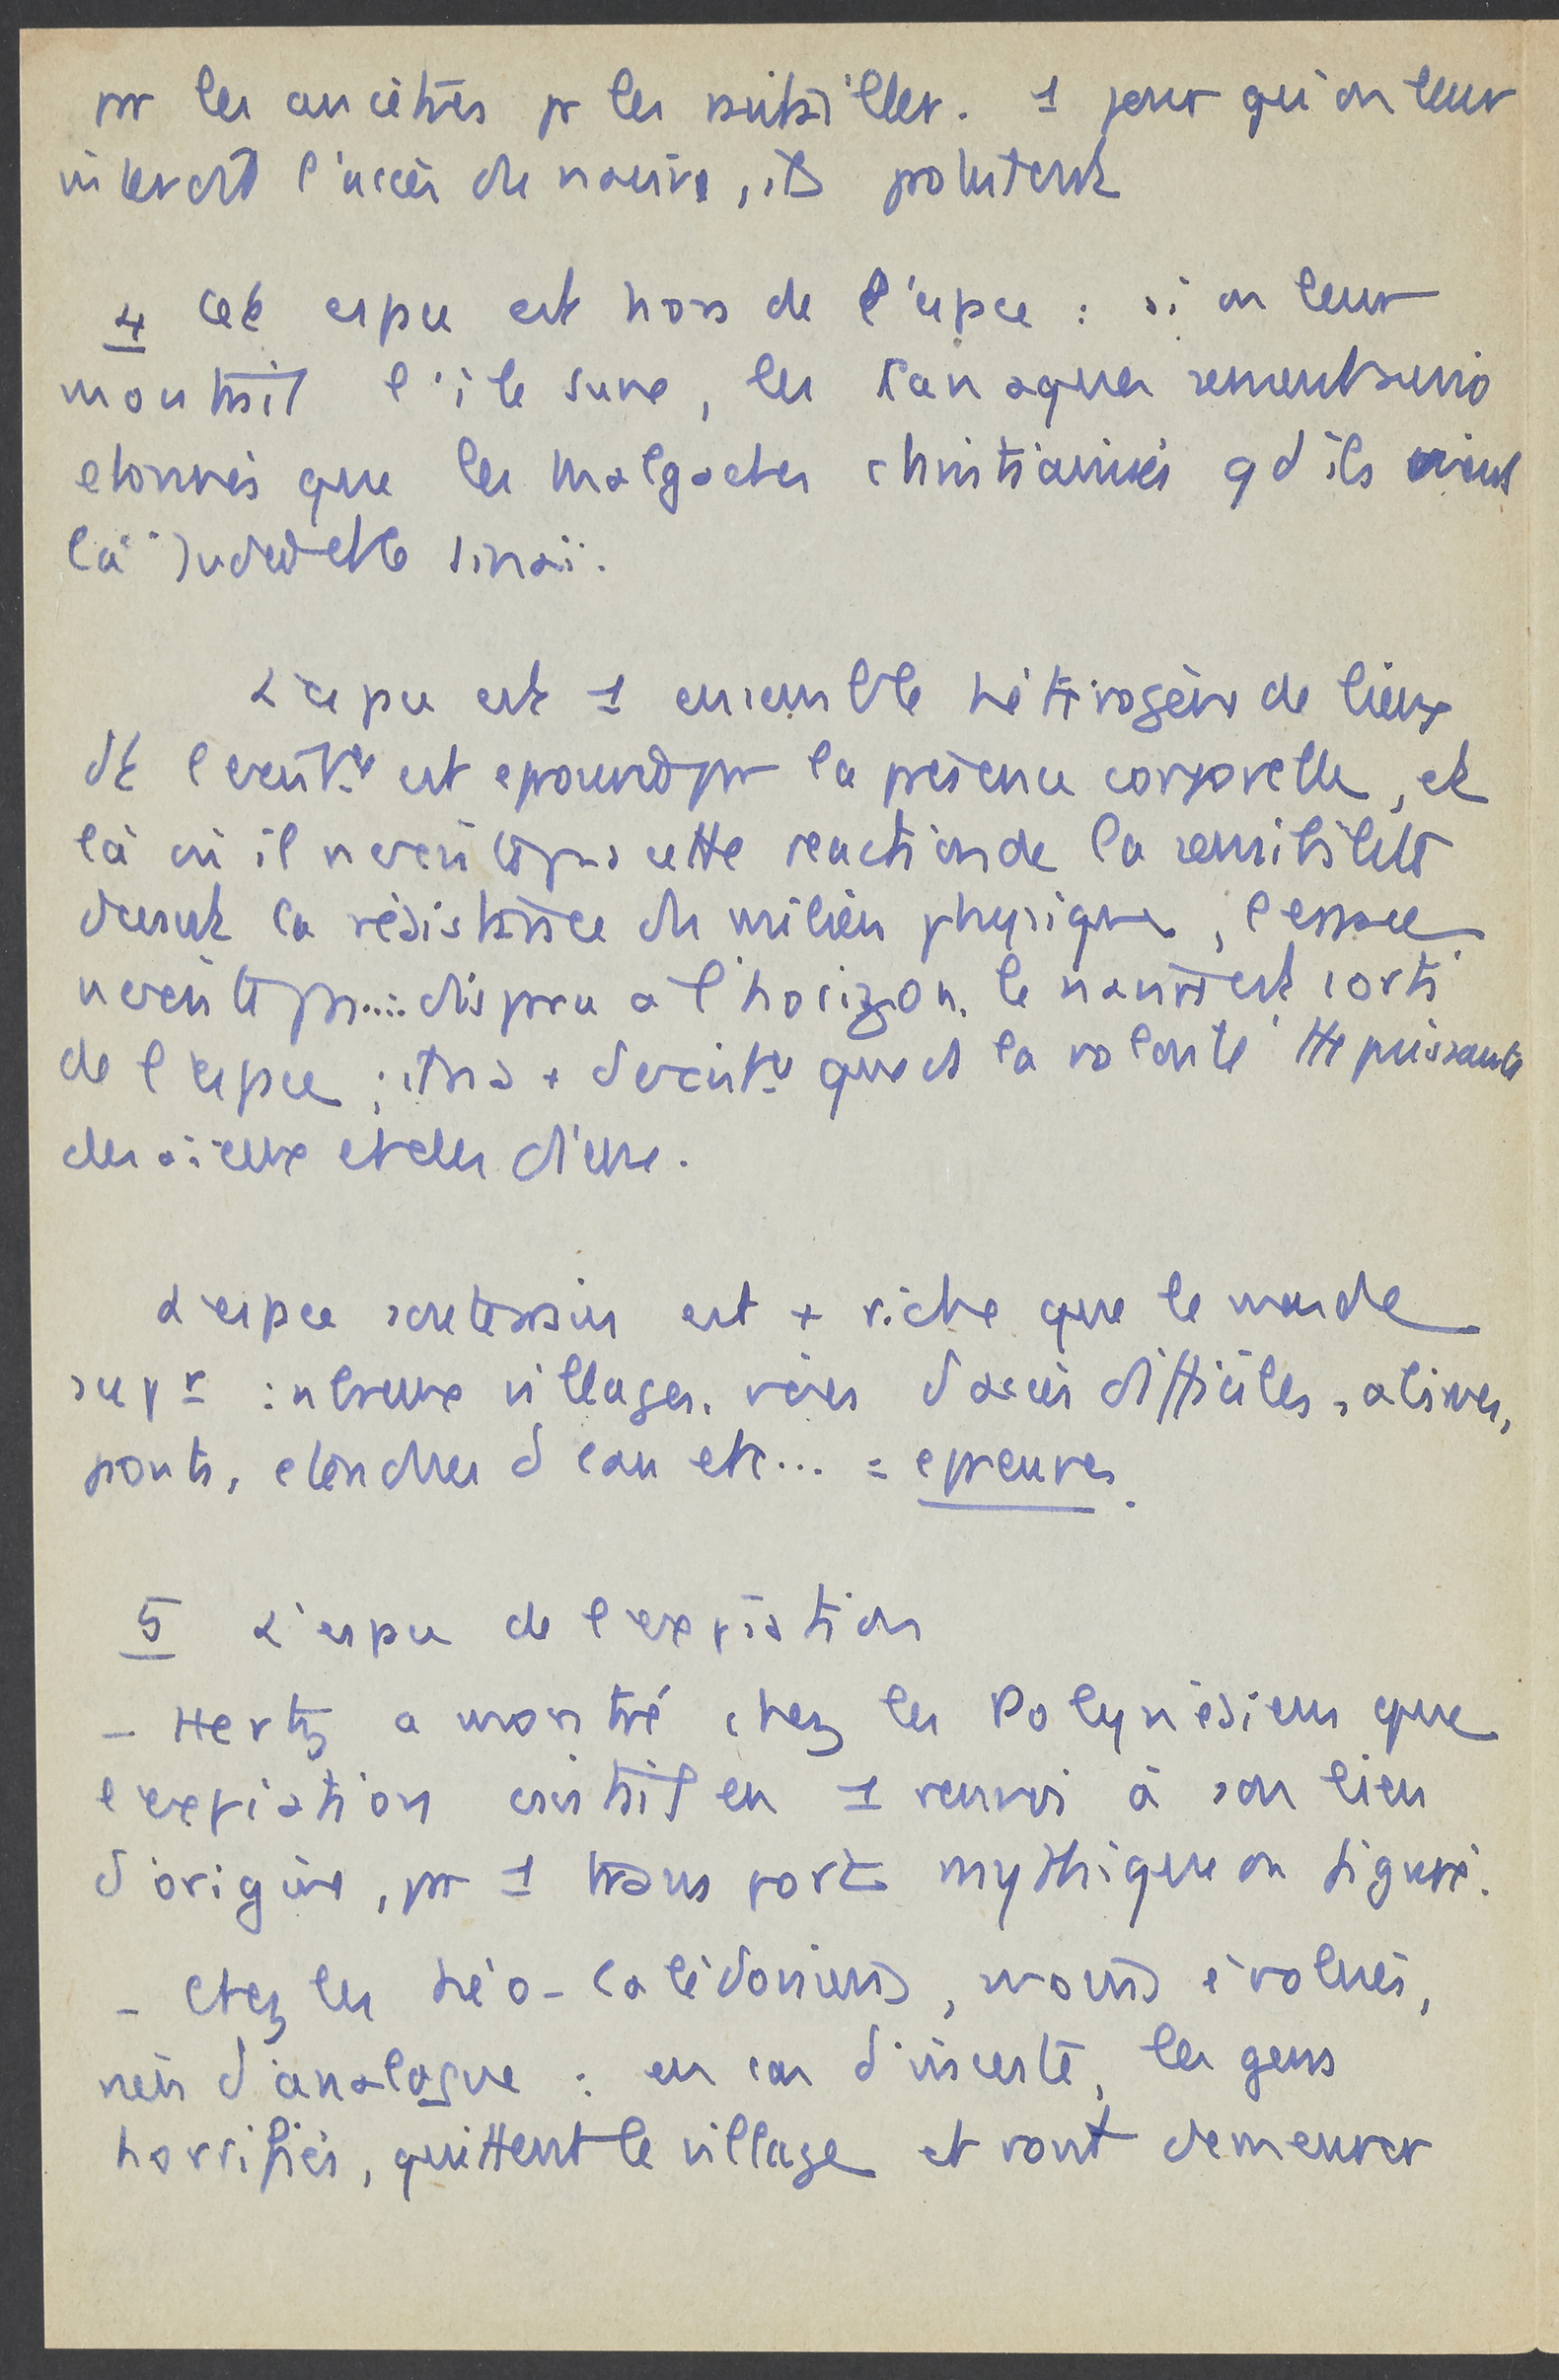 pr les ancêtres pr les ravitailler. 1 jour qu'on leur
interdit l'accès du navire, ils protestent
4 Cet espce est hors de l'espce : si on leur
montrait l'île        , les Canaques seraient aussi
etonnés que les Malgaches christianisés qd ils virent
là            Sinaï.
L'espce est 1 ensemble hétérogène de lieux
dt l'existce est eprouvée pr la présence corporelle, et
là où il n'existe pas cette reaction de la sensibilité
devant la résistance du milieu physique, l'espace
n'existe pas... : disparu a l'horizon, le navire est sorti
de l'espce ; il n'a + d'existce que ds la volonté tte puissante
des aieux et des dieux.
L'espce souterrain est + riche que le monde
supr : nbreux villages, voies d'accès difficiles, abimes,
ponts, etendues d'eau etc... = epreuves.
5 L'espce de l'expiation
- Hertz a montré chez les Polynésiens que
l'expiation consistait en 1 renvoi à son lieu
d'origine, pr 1 transport mythique ou figuré.
- Chez les Néo-Calédoniens, moins évolués,
rien d'analogue : en cas d'inceste, les gens
horrifiés, quittent le village et vont demeurer